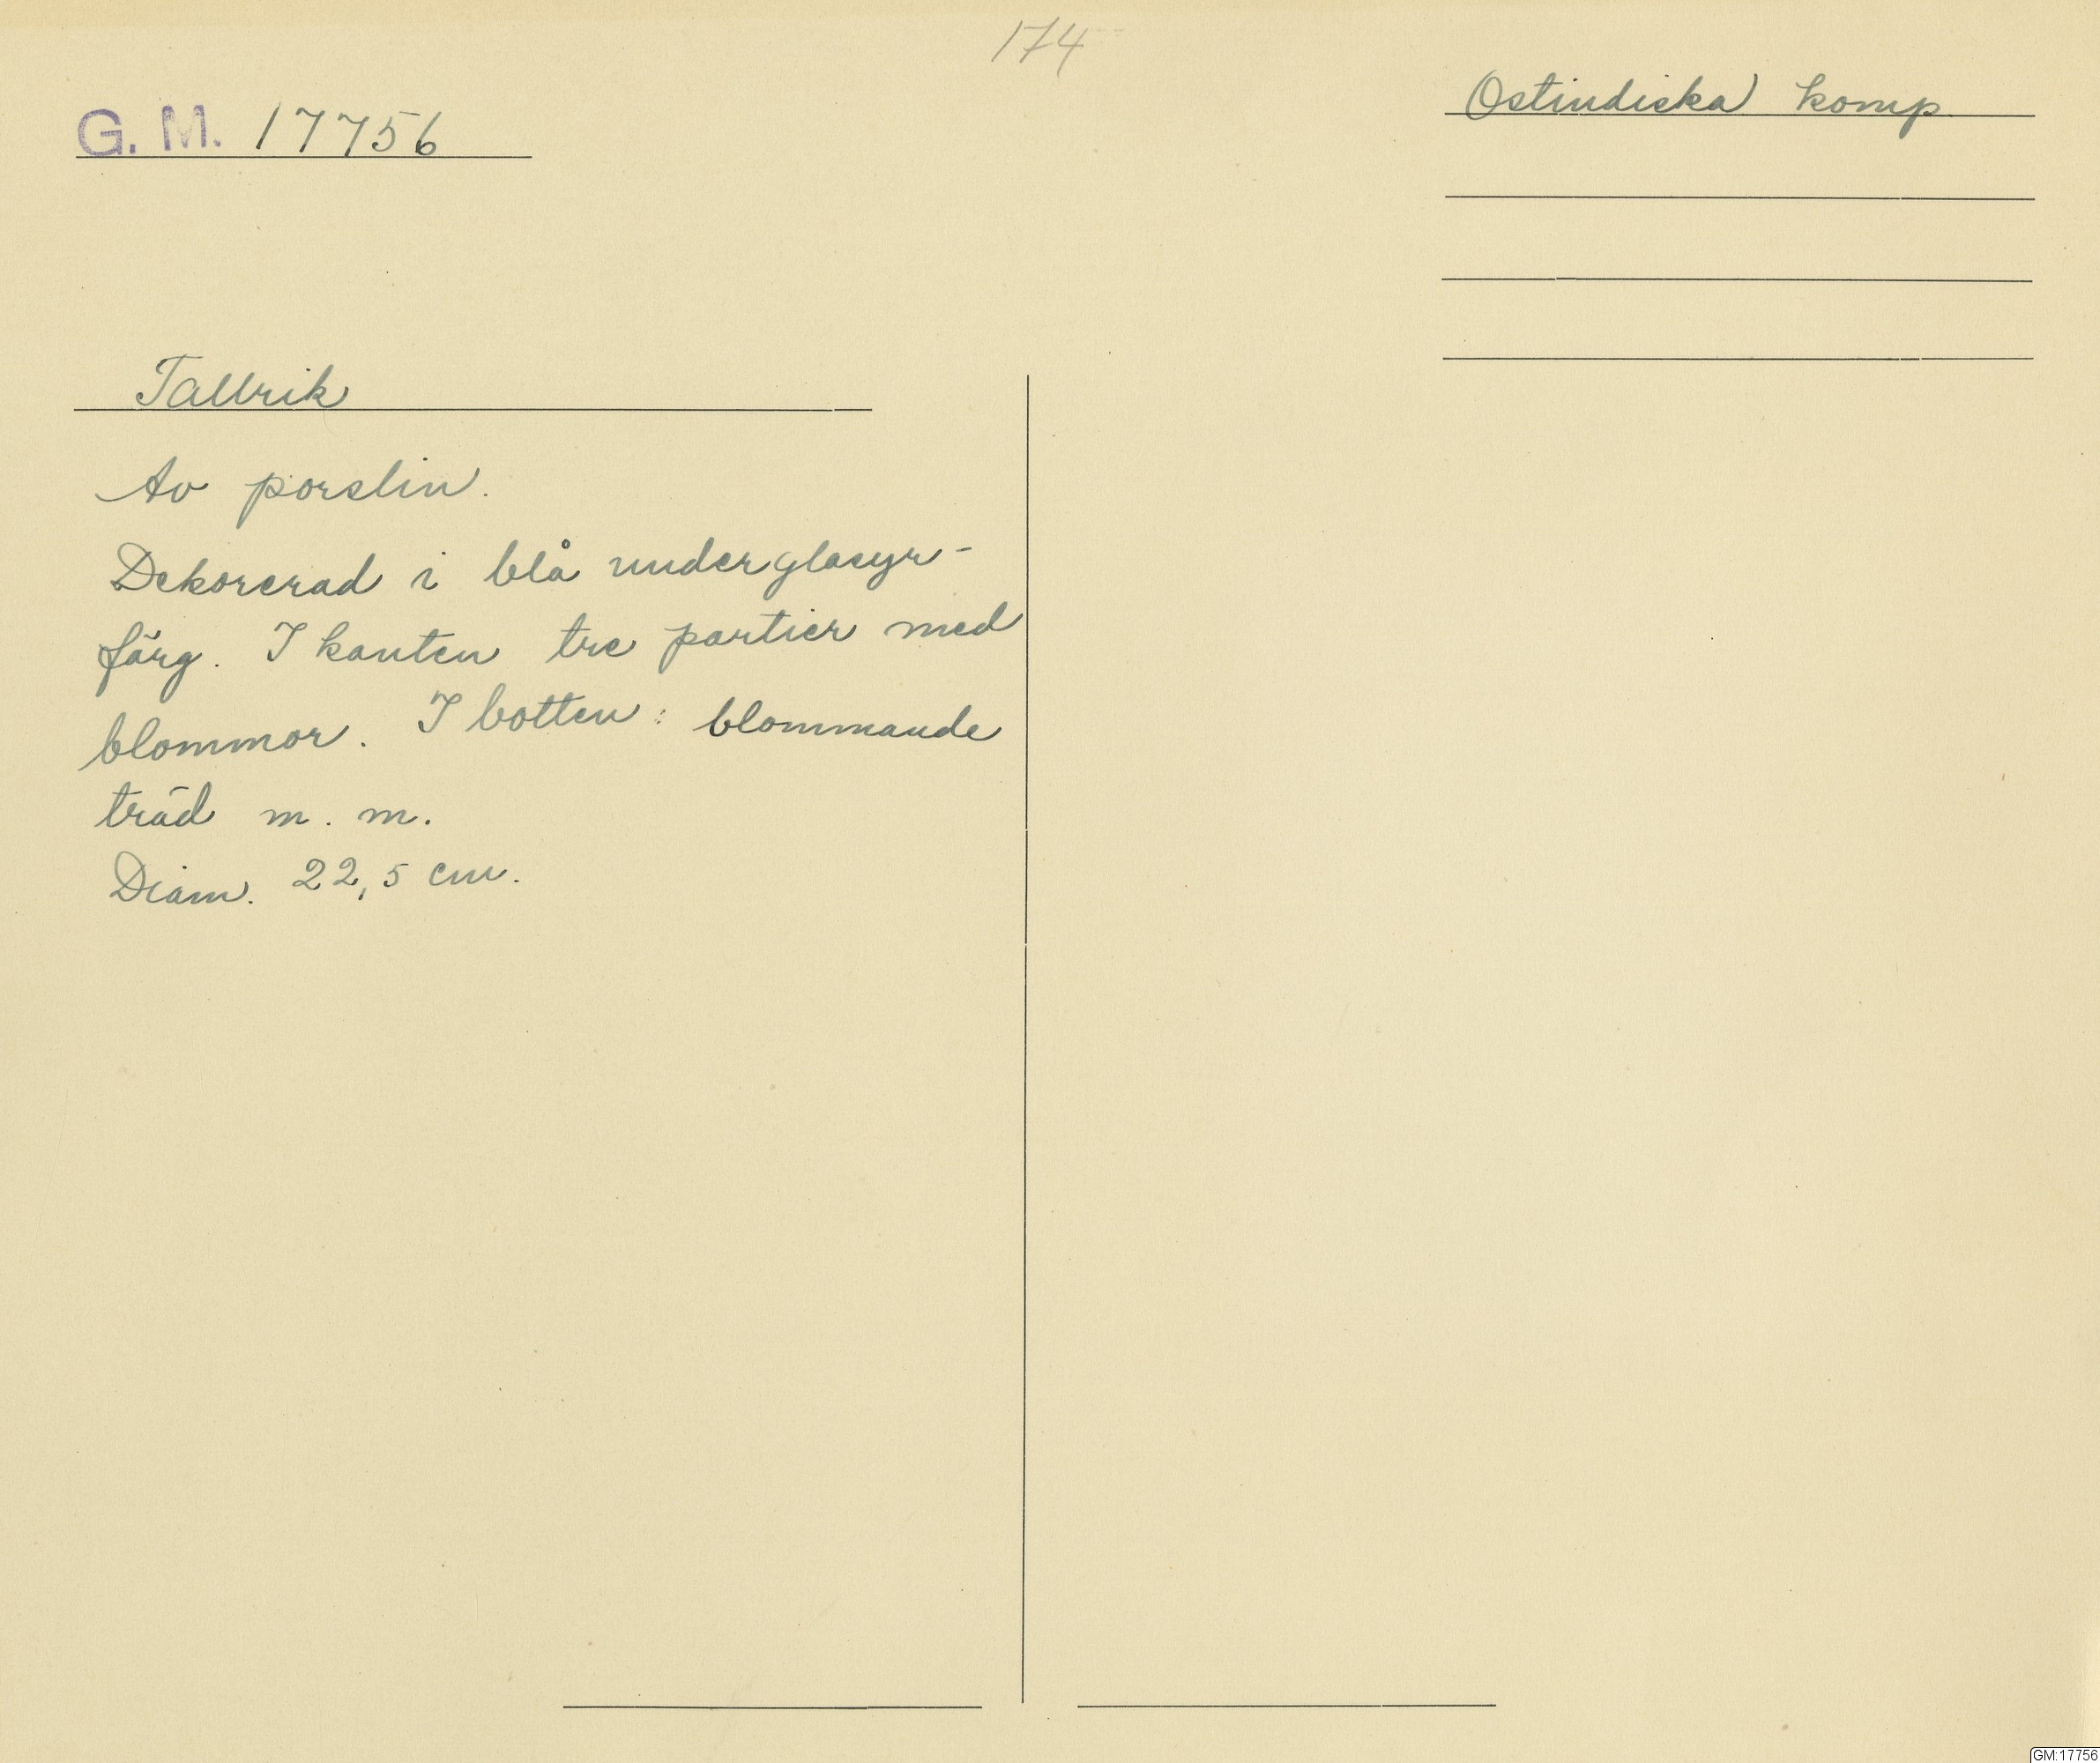 174
G. M. 17756
Ostindiska komp.
Tallrik
Av porslin.
Dekorerad i blå underglasyr-
färg. I kanten tre partier med
blommor. I botten: blommande
träd m. m.
Diam. 22,5 cm.
GM:17756